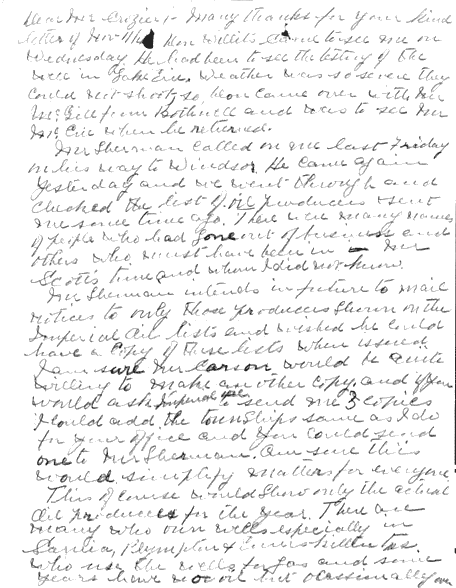 Dear Mr Crozier:- Many thanks for your kind
letter of Nov 11th. Don Willits came to see me on
Wednesday. He had been to see the testing of the
well in Lake Erie. Weather was so severe they
could not shoot, so, Don came over with Mr
McGill from Bothwell and was to see Mr
McGill when he returned.
Mr Sherman called on me last Friday
on his way to Windsor. He came again
yesterday and we went through and
checked the list of oil producers I sent
me some time ago. There were many names
of people who had gone out of business and
others who must have been in - Mr
Scott's time and whom I did not know.
Mr Sherman intends in future to mail
notices to only those producers shown on the
Imperial Oil lists and wished he could
have a copy of these lists when issued.
I am sure Mr Carson would be quite
willing to make another copy and if you
would ask Imperial Oil to send me 3 copies
I could add the townships same as I do
for your office and you could send
one to Mr Sherman. Am sure this
would simplify matters for everyone
This of course would show only the actual
oil producers for the year. There are
many who own wells especially in
Sarnia, Plympton & Enniskillen tps.
who use the wells for gas and some
years have no oil but occasionally